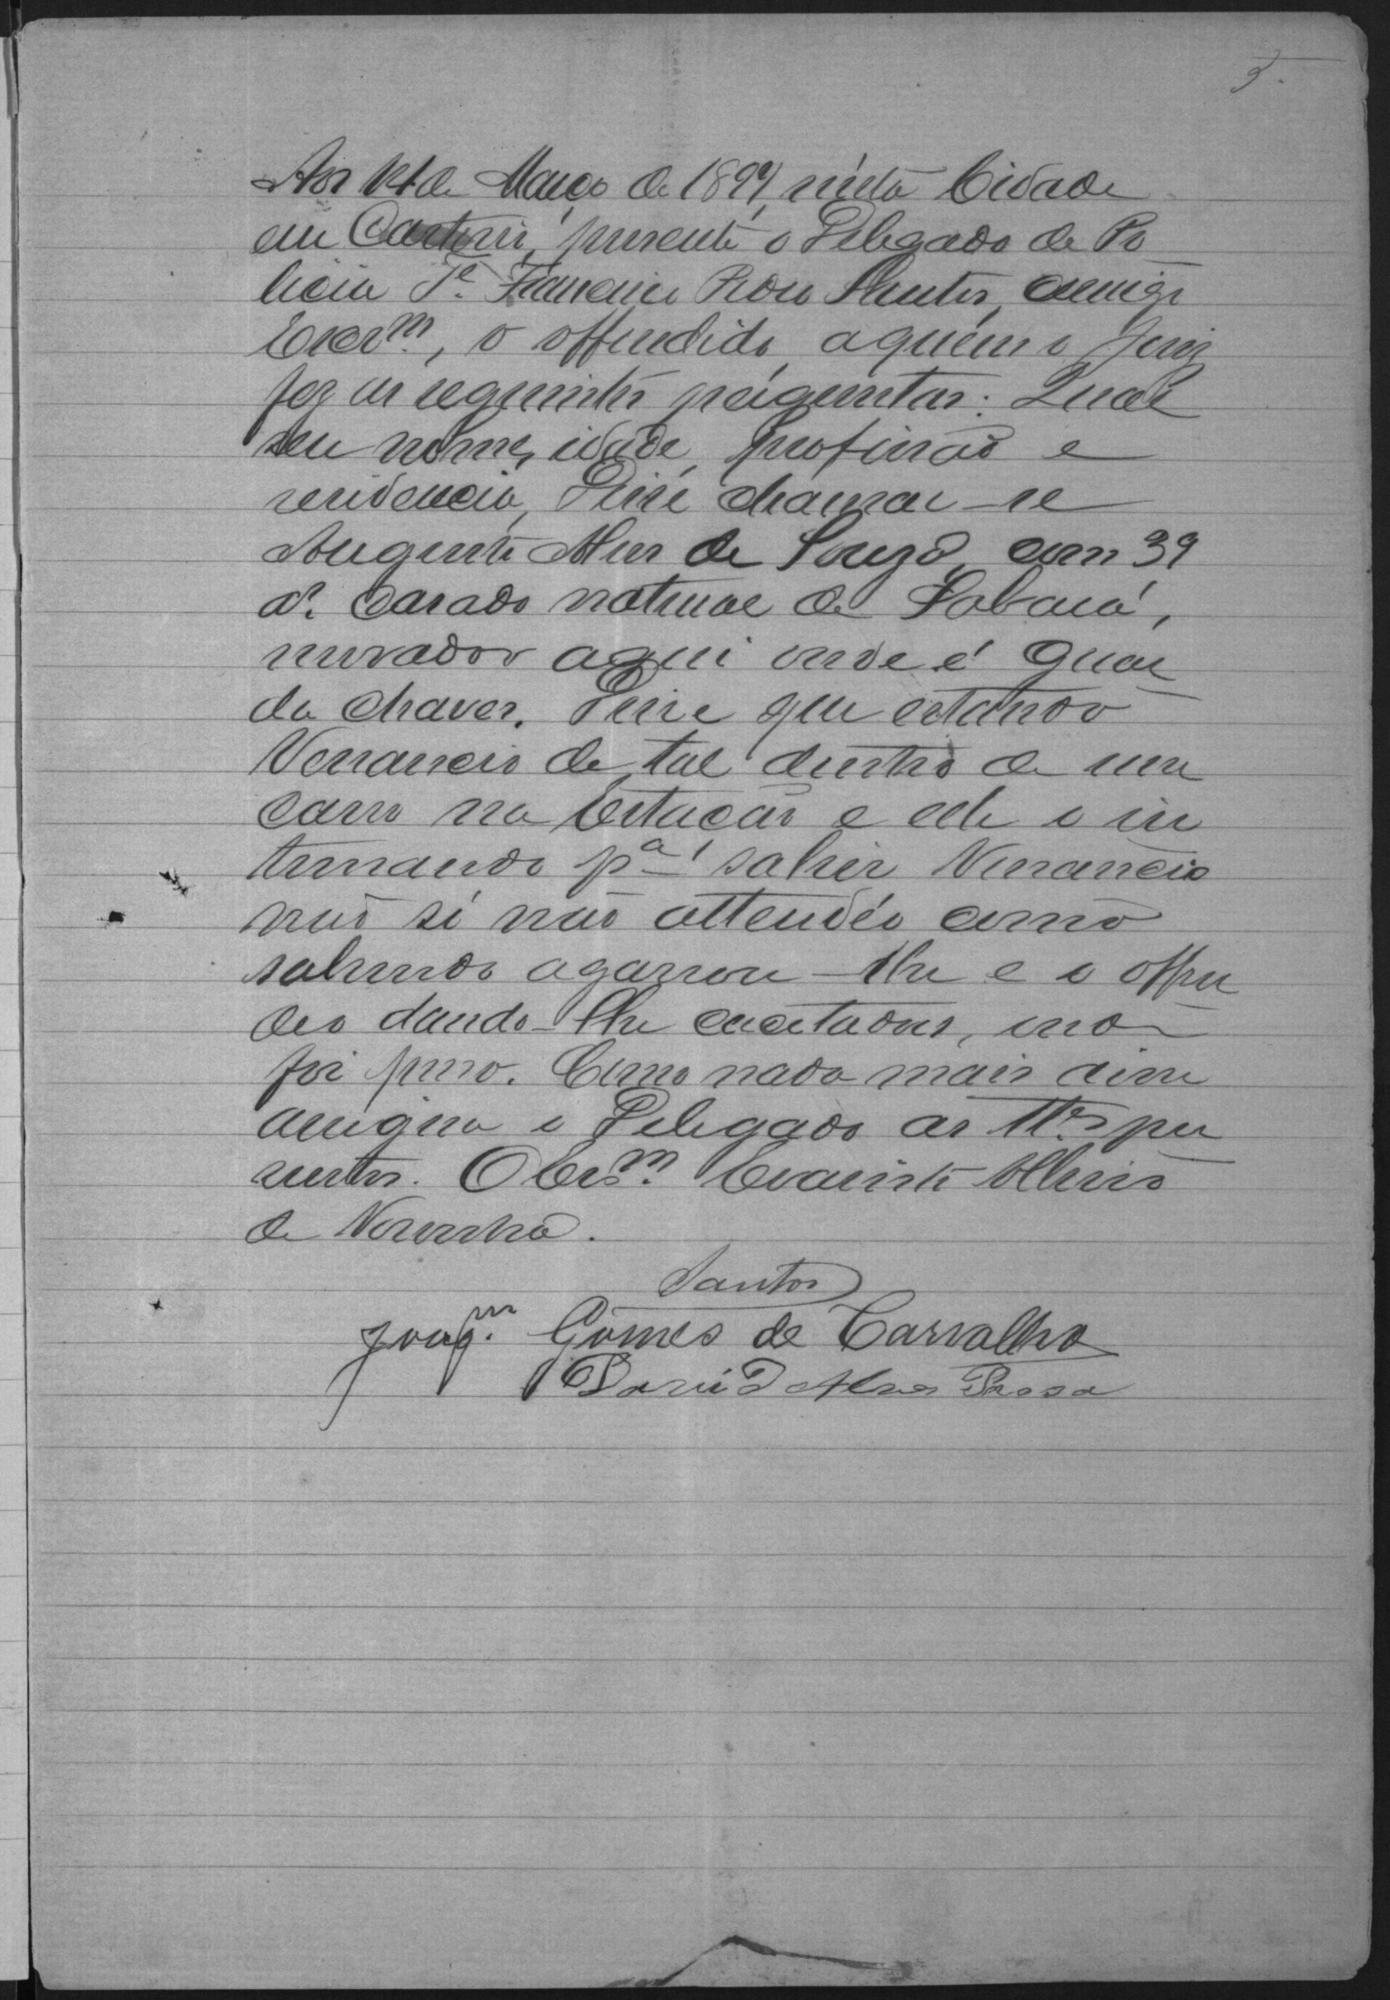 5.
Aos 14 de Março de 1899, nésta Cidade
em Cartorio, presente o Delegado de Po
licia Te. Francisco Pedro Santos, comigo
Escrm., o offendido, a quem o Juiz
fez as seguintes perguntas: Qual
seu nome, idade, profissão e
residencia, Disse chamar-se
Augusto Alves de Souza, com 39
as. casado natural de Sabará,
morador aqui onde é guar
da chaves. Disse que estando
Venancio de tal dentro de um
carro na Estacão e elle o in
timando pa. sahir Venancio
não só não attendêo como
sahindo agarrou-lhe e o offen
deo dando-lhe cacetadas,
foi preso. Como nada mais disse
assigna o Delegado as Ttas. pre
sentes. O Escrm. Evaristo
de Noronha.
Santos
Joaqm. Gomes de Carvalho
David Alves Rosa